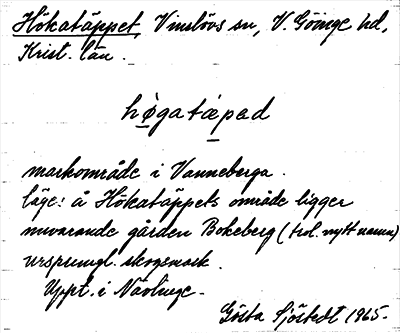 Hökatäppet, Vinslövs sn, V. Göinge hd,
Krist. län.
høgatæpad
markområde i Vanneberga.
läge: å Hökatäppets område ligger
nuvarande gården Bokeberg (trol. nytt namn)
ursprungl. skogsmark.
Uppt. i Nävlinge.
Gösta Sjöstedt 1965.